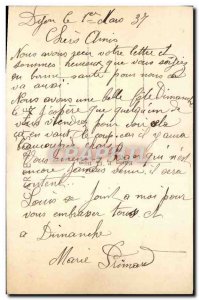 Lyon le 1er Mars 37
Chers Amis
Nous avons reçu votre lettre et
sommes heureux que vous soyez
en bonne santé pour nous
va aussi.
Nous avons une belle fête Dimanche
le 7 j'espère que
vous viendrez pour voir cela
en vaut le coup car il y aura
beaucoup
qui n'est
encore jamais venu il sera
content.
Louis se joint à moi pour
vous embrasser tous et
a Dimanche
Marie